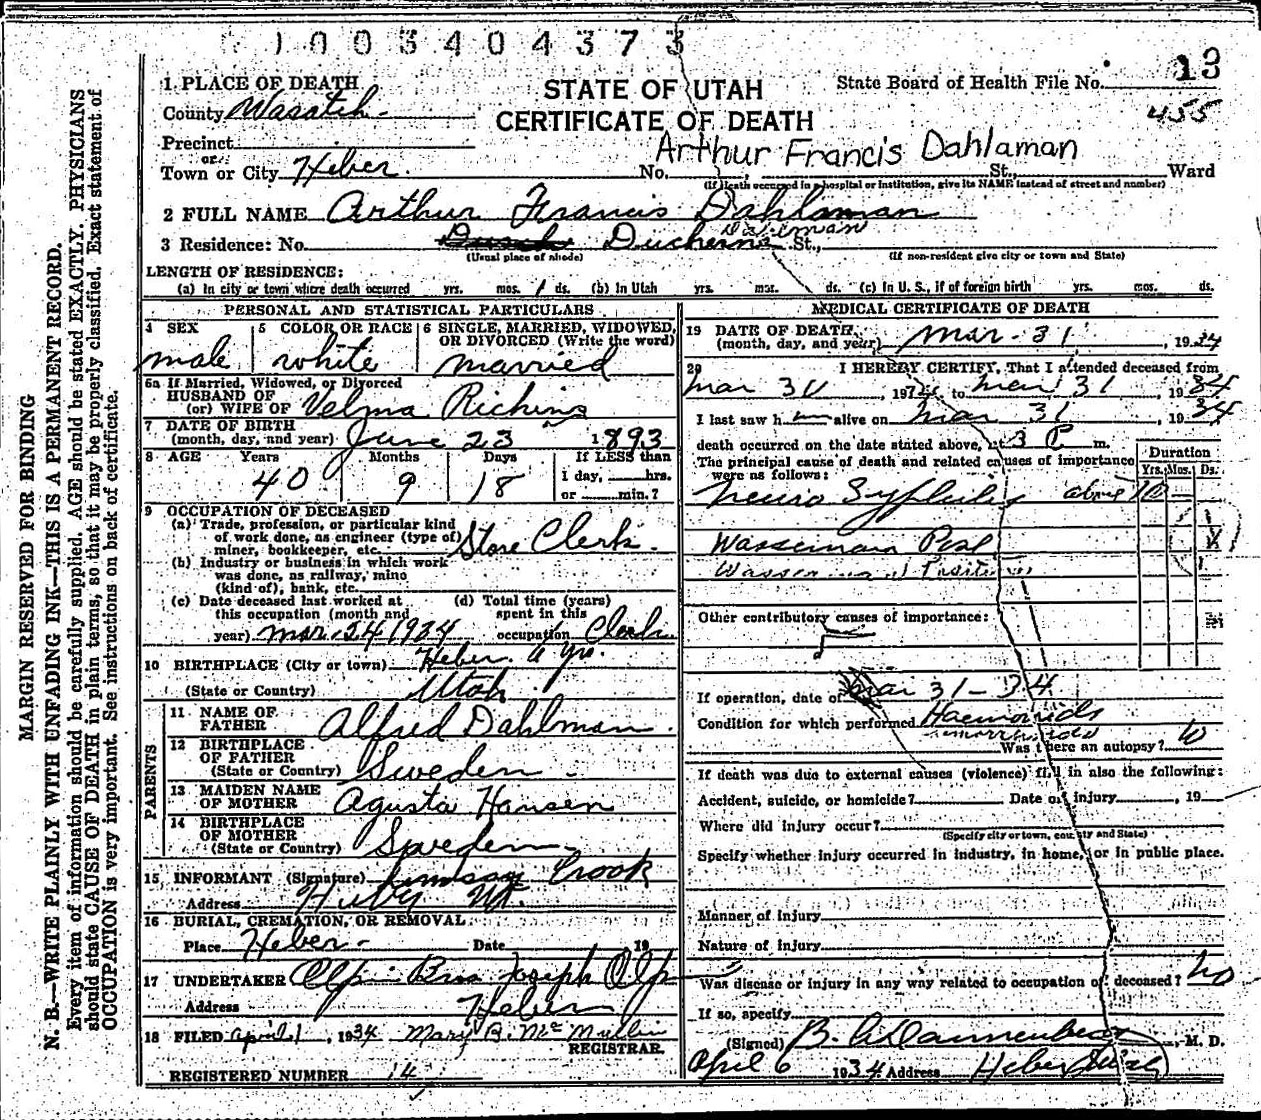 1003404373
13
STATE OF UTAH
CERTIFICATE OF DEATH
State Board of Health File No.
455
1 PLACE OF DEATH
County Wasatch
Precinct
or
Town or City Heber.
Arthur Francis Dahlaman
No. , St., Ward
(If death occurred in a hospital or institution, give its NAME instead of street and number)
2 FULL NAME Arthur Francis Dahlaman
Dahlman
3 Residence: No. Duchesne St.,
(Usual place of abode) (If non-resident give city or town and State)
LENGTH OF RESIDENCE:
(a) In city or town where death occurred yrs. mos. 1 ds. (b) In Utah yrs. mos. ds. (c) In U. S., if of foreign birth yrs. mos. ds.
PERSONAL AND STATISTICAL PARTICULARS
4 SEX
male
5 COLOR OR RACE
white
6 SINGLE, MARRIED, WIDOWED,
OR DIVORCED (Write the word)
married
6a If Married, Widowed, or Divorced
HUSBAND OF
(or) WIFE OF Velma Rickins
7 DATE OF BIRTH
(month, day, and year) June 23 1893
8 AGE Years Months Days If LESS than
1 day, hrs.
or min.?
40 9 18
9 OCCUPATION OF DECEASED
(a) Trade, profession, or particular kind
of work done, as engineer (type of)
miner, bookkeeper, etc. Store Clerk.
(b) Industry or business in which work
was done, as railway, mine
(kind of), bank, etc.
(c) Date deceased last worked at
this occupation (month and
year) mar-24 1934
(d) Total time (years)
spent in this
occupation Clerk
yrs.
10 BIRTHPLACE (City or town) Heber.
(State or Country) Utah
PARENTS
11 NAME OF
FATHER Alfred Dahlman
12 BIRTHPLACE
OF FATHER
(State or Country) Sweden
13 MAIDEN NAME
OF MOTHER Agusta Hansen
14 BIRTHPLACE
OF MOTHER
(State or Country) Sweden
15 INFORMANT (Signature) Lindsay Crook
Address Ut.
16 BURIAL, CREMATION, OR REMOVAL
Place Heber Date 19
17 UNDERTAKER Olp Bros Joseph Olp
Address Heber
18 FILED april 1, 1934 Mary B. Mc Mullin
REGISTRAR.
REGISTERED NUMBER 14
MEDICAL CERTIFICATE OF DEATH
19 DATE OF DEATH
(month, day, and year) mar-31, 1934
20 I HEREBY CERTIFY, That I attended deceased from
mar 30 , 19 to mar 31 , 1934
I last saw h alive on mar 31 1934
death occurred on the date stated above, at 3 P m.
The principal cause of death and related causes of importance
were as follows:
Duration
Yrs. Mos. Ds.
Neuro Syphilis about 10
Wasserman Posi
Wasserman Positive
Other contributory causes of importance:
If operation, date of mar 31-34
Condition for which performed Haemorrids
Was there an autopsy?
If death was due to external causes (violence) fill in also the following:
Accident, suicide, or homicide? Date of injury , 19
Where did injury occur?
(Specify city or town, county and State)
Specify whether injury occurred in industry, in home, or in public place.
Manner of injury
Nature of injury
Was disease or injury in any way related to occupation of deceased? No
If so, specify
(Signed) B. A. Dannenberg, M. D.
April 6 1934 Address Heber Utah
MARGIN RESERVED FOR BINDING
N. B.—WRITE PLAINLY WITH UNFADING INK—THIS IS A PERMANENT RECORD.
Every item of information should be carefully supplied. AGE should be stated EXACTLY. PHYSICIANS
should state CAUSE OF DEATH in plain terms, so that it may be properly classified. Exact statement of
OCCUPATION is very important. See instructions on back of certificate.